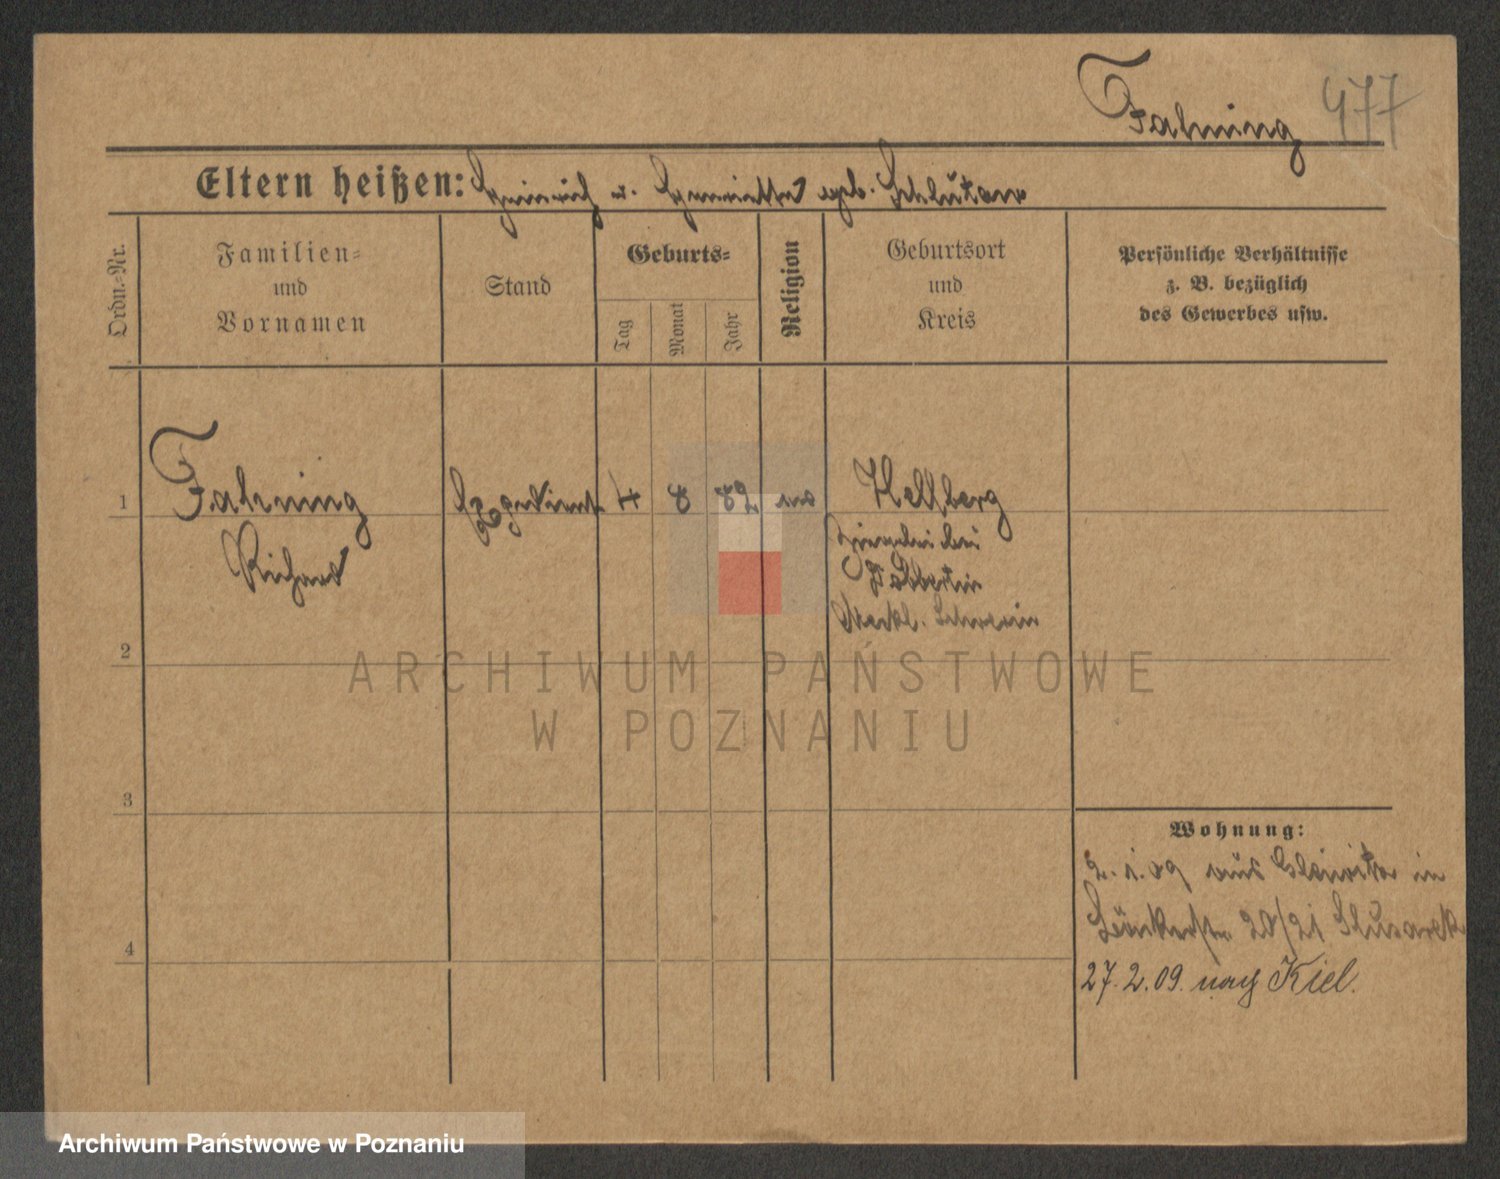 Fahning 477
Eltern heißen: Heinrich u. Henriette geb. Schlüter
Ordn.-Nr.
Familien-
und
Vornamen
Stand
Geburts-
Tag
Monat
Jahr
Religion
Geburtsort
und
Kreis
Persönliche Verhältnisse
z. B. bezüglich
des Gewerbes usw.
1 Fahning Expedient 4 8 82
Richard
bei
Dobbertin
Meckl. Schwerin
2
ARCHIWUM PAŃSTWOWE
W POZNANIU
3
Wohnung:
2. 1. 09 aus in
20/21
4
27. 2. 09. nach Kiel.
Archiwum Państwowe w Poznaniu